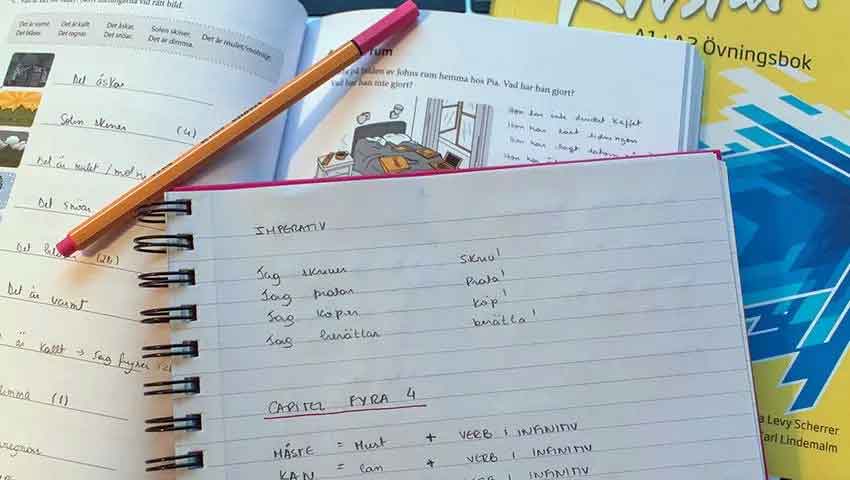 Det är varmt.
Det är kallt.
Det åskar.
Solen skiner.
Det är mulet/molnigt.
Det blåser.
Det regnar.
Det snöar.
Det är dimma.
Det åskar
Solen skiner (4)
Det är mulet /
Det snöar
Det (2B)
Det är varmt
är kallt → Jag fryser
dimma (1)
rum
på bilden av Johns rum hemma hos Pia. Vad har han gjort?
Vad har han inte gjort?
Han har inte druckit kaffet
Han har läst tidningen
Han har
Rivstart
A1+A2 Övningsbok
Levy Scherrer
Karl Lindemalm
IMPERATIV
Jag skriver skriv!
Jag pratar Prata!
Jag köper köp!
Jag berättar berätta!
CAPITEL FYRA 4
MÅSTE = Must + VERB I INFINITIV
KAN = can + VERB I INFINITIV
VERB I INFINITIV